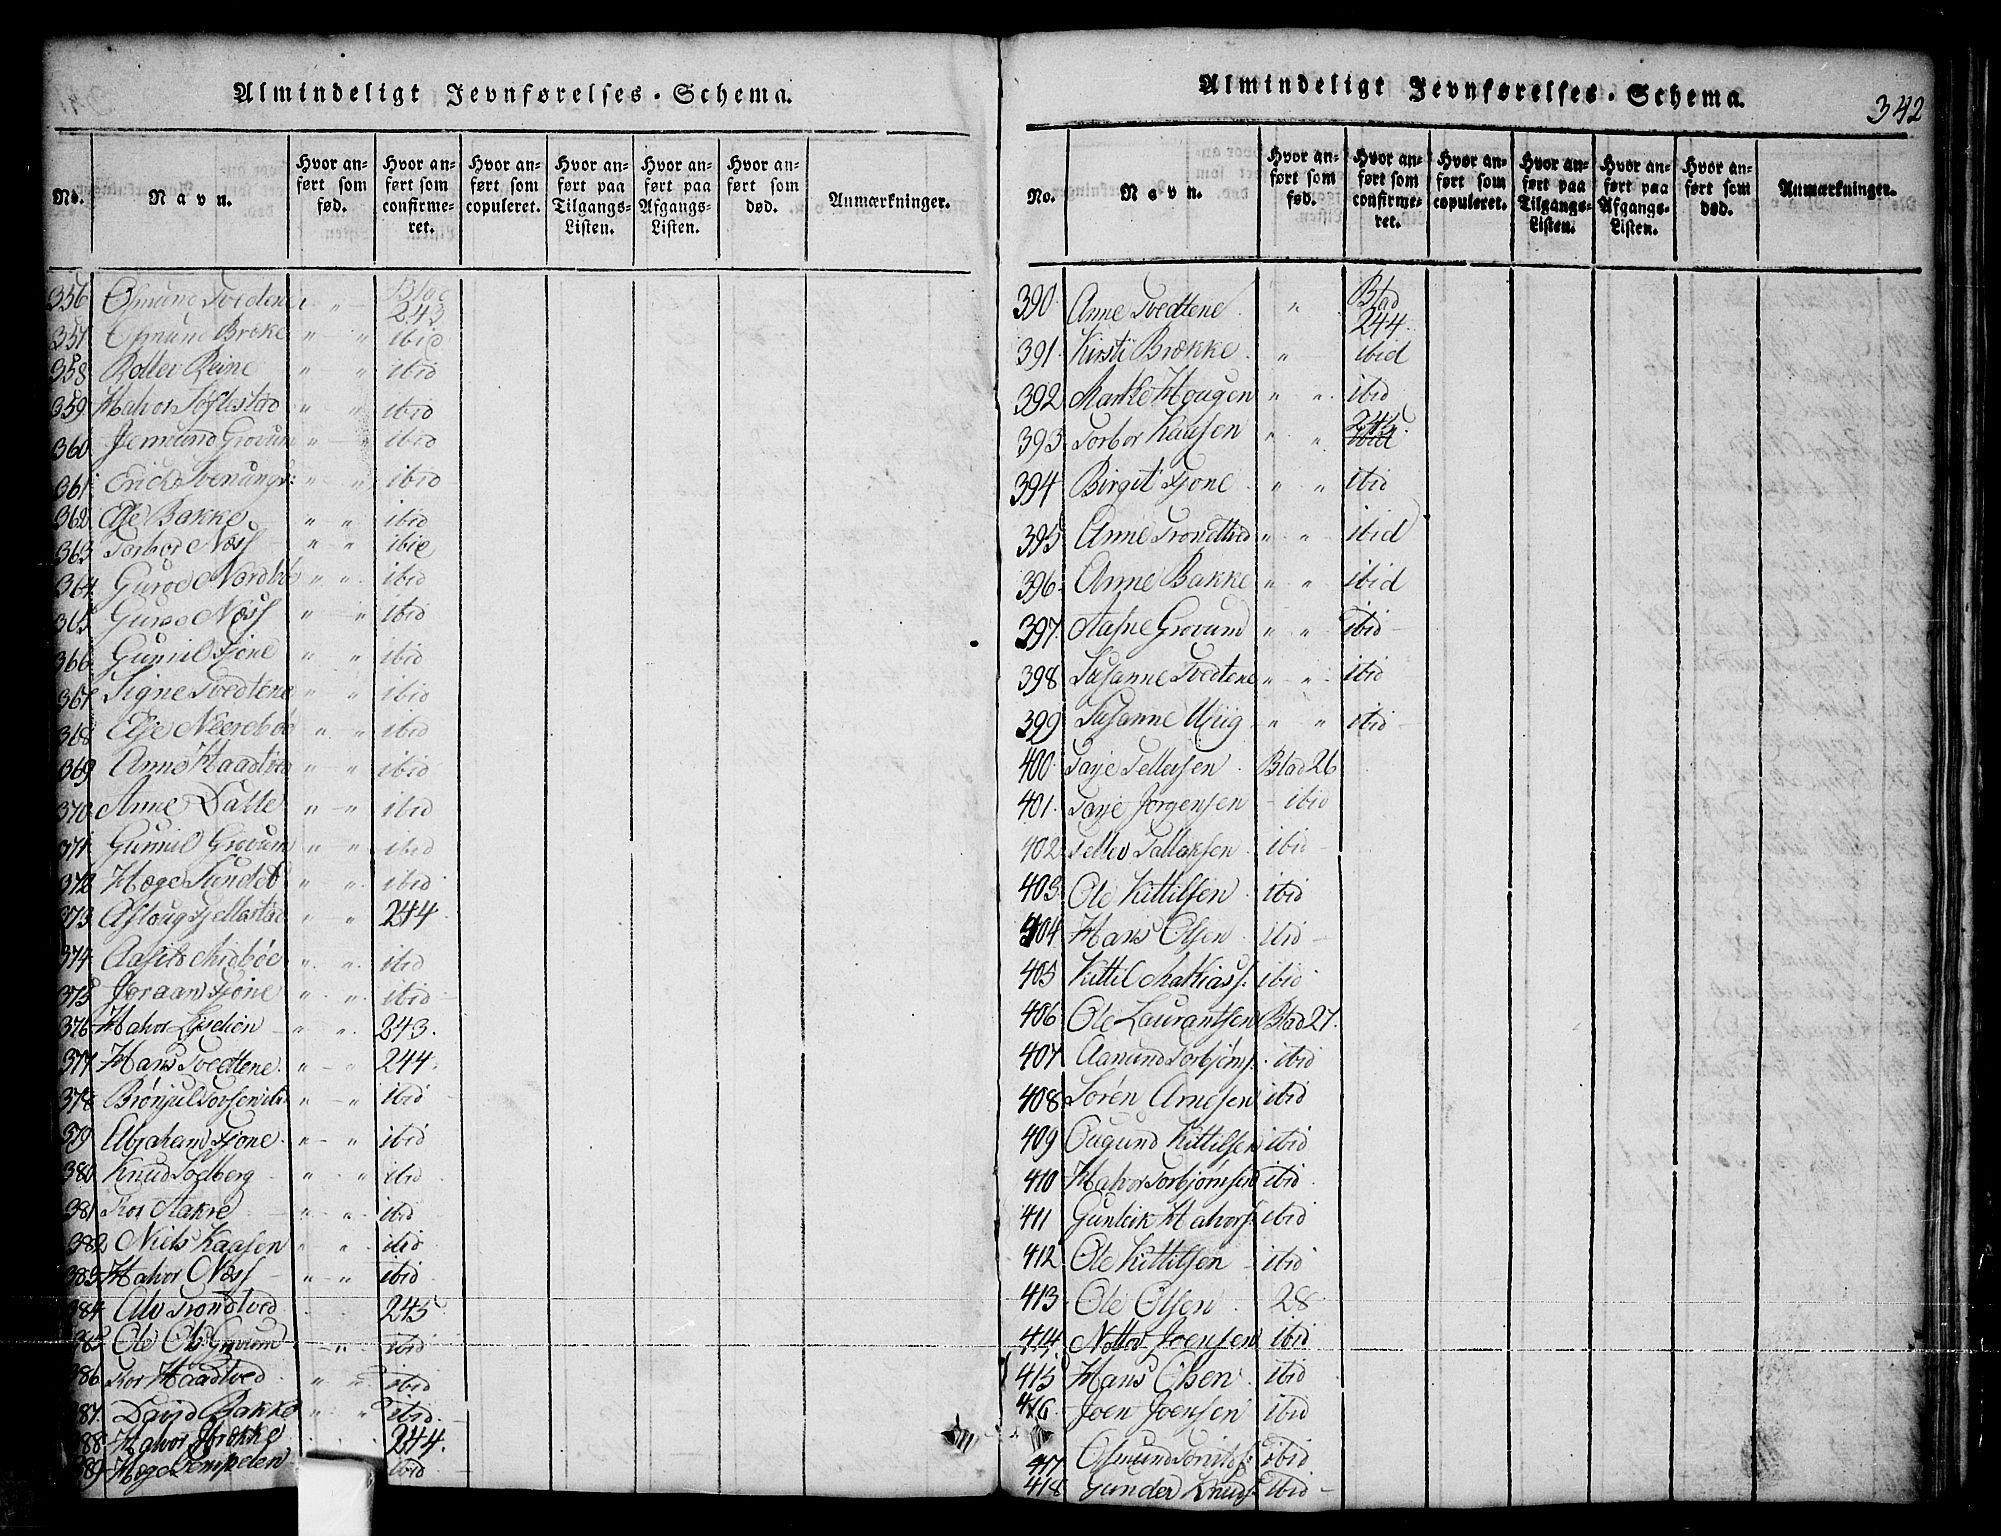 Almindeligt Jevnførelses-Schema.
No. Navn. Hvor anført som fød. Hvor anført som confirmeret. Hvor anført som copuleret. Hvor anført paa Tilgangs-Listen. Hvor anført paa Afgangs-Listen. Hvor anført som død. Anmærkninger.
356 Osmund Tvedten " " Blad 243
357 Osmund Brøke " " ibid
358 Rollev Reine " " ibid
359 Halvor Søftestad " " ibid
360 Jermund Grovum " " ibid
361 Erich Svenungs: " " ibid
362 Else Bakke " " ibid
363 Torbor Næss " " ibid
364. Guroe Nordbö " " ibid
365 Guroe Næss " " ibid
366 Gunnil Fjone " " ibid
367 Signe Tvedtene " " ibid
368 Else Neerebøe " " ibid
369 Anne Haadtved " " ibid
370 Anne Dalle " " ibid
371 Gunnil Grovum " " ibid
372 Hæge Sundet " " ibid
373 Aslaug Fjellestad " " 244
374 Aasild Midbøe " " ibid
375 Joraan Fjone " " ibid
376 Halvor Liselien " " 243.
377 Hans Tvedtene " " 244.
378 Brønjul " " ibid
379 Abraham Fjone " " ibid
380 Knud Solberg " " ibid
381 Tor Aakre " " ibid
382 Niels Kaasen " " ibid
383 Halvor Næss " " ibid
384 Olv Trondtved 245.
385 Ole Ols: Grovum " ibid
386 Tor Haadtved " " ibid
387. David Bakke " " ibid.
388 Halvor Brække 244.
389 Hæge Tempelen ibid
Almindeligt Jevnførelses-Schema.
342
No. Navn. Hvor anført som fød. Hvor anført som confirmeret. Hvor anført som copuleret. Hvor anført paa Tilgangs-Listen. Hvor anført paa Afgangs-Listen. Hvor anført som død. Anmærkninger.
390 Anne Tvedtene " Blad 244.
391 Kirsti Brække " ibid
392 Marthe Hougen " " ibid
393 Torbor Kaasen " " 245. ibid
394 Birgit Fjone " " ibid
395 Anne Trondtved " " ibid
396 Anne Bakke " " ibid
397 Aasne Grovum " " ibid
398 Susanne Tvedtene " " ibid
399 Susanne Uhlig " " ibid
400 Tarje Tellefsen Blad 26
401. Tarje Jørgensen ibid
402 Tellev Tallaksen ibid
403 Ole Kittilsen ibid
404 Hans Olsen ibid
405 Kittil Mathias s. ibid
406 Ole Laurantsen Blad 27.
407 Aanund Torbjøns. ibid
408 Sören Arnesen ibid
409 Ougund Kittilsen ibid
410 Halvor Torbjørnsen ibid
411 Gunleik Halvors. ibid
412 Ole Kittilsen ibid
413 Ole Olsen 28
414 Notto Joensen ibid
415 Hans Olsen ibid
416 Joen Joensen ibid
417 Osmund ibid
418 Gunder Knuds: ibid